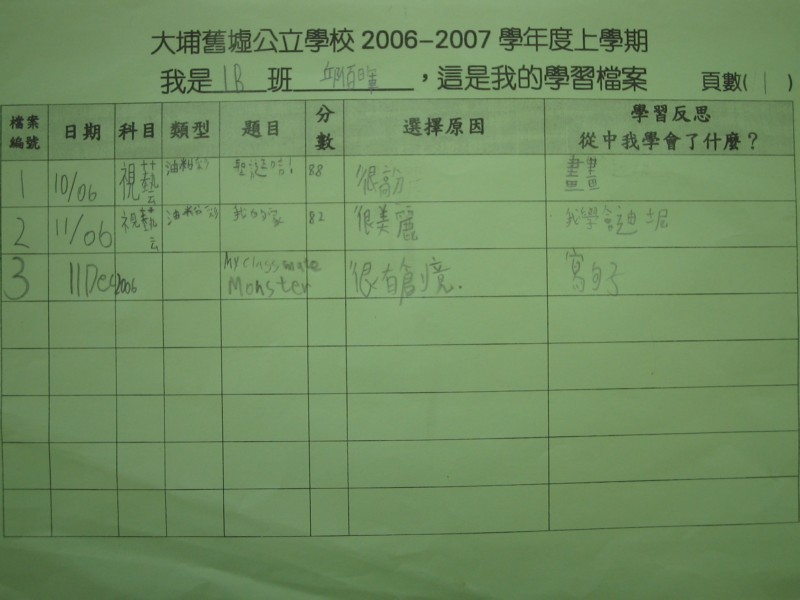 大埔舊墟公立學校 2006–2007 學年度上學期
我是 1B 班 邱佰暉，這是我的學習檔案 頁數( 1 )
檔案編號 日期 科目 類型 題目 分數 選擇原因 學習反思 從中我學會了什麼？
1 10/06 視藝 88 很 畫畫
2 11/06 視藝 我的家 82 很美麗 我學會
3 11Dec2006 My classmate Monster 很有創意. 寫句子